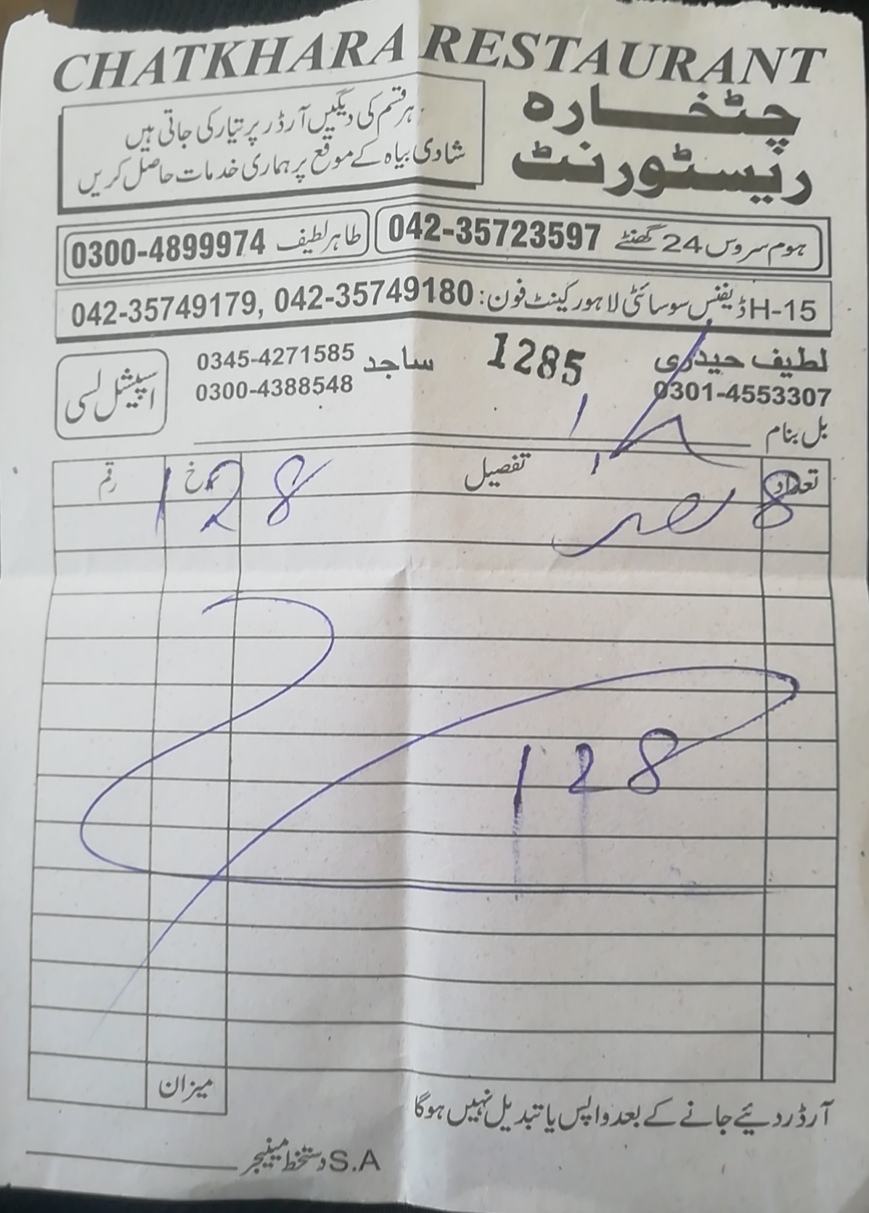 CHATKHARA RESTAURANT
چٹخارہ
ریسٹورنٹ
ہر قسم کی دیگیں آرڈر پر تیار کی جاتی ہیں
شادی بیاہ کے موقع پر ہماری خدمات حاصل کریں
ہوم سروس 24 گھنٹے 042-35723597
طاہر لطیف 0300-4899974
H-15 ڈیفنس سوسائٹی لاہور کینٹ فون: 042-35749180, 042-35749179
لطیف حیدری
0301-4553307
1285
ساجد 0345-4271585
0300-4388548
اسپیشل لسی
بل بنام
تعداد تفصیل نرخ رقم
8 128
128
میزان
آرڈر دئیے جانے کے بعد واپس یا تبدیل نہیں ہوگا
S.A دستخط مینیجر